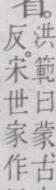 洪範曰蒙古
反。宋世家作